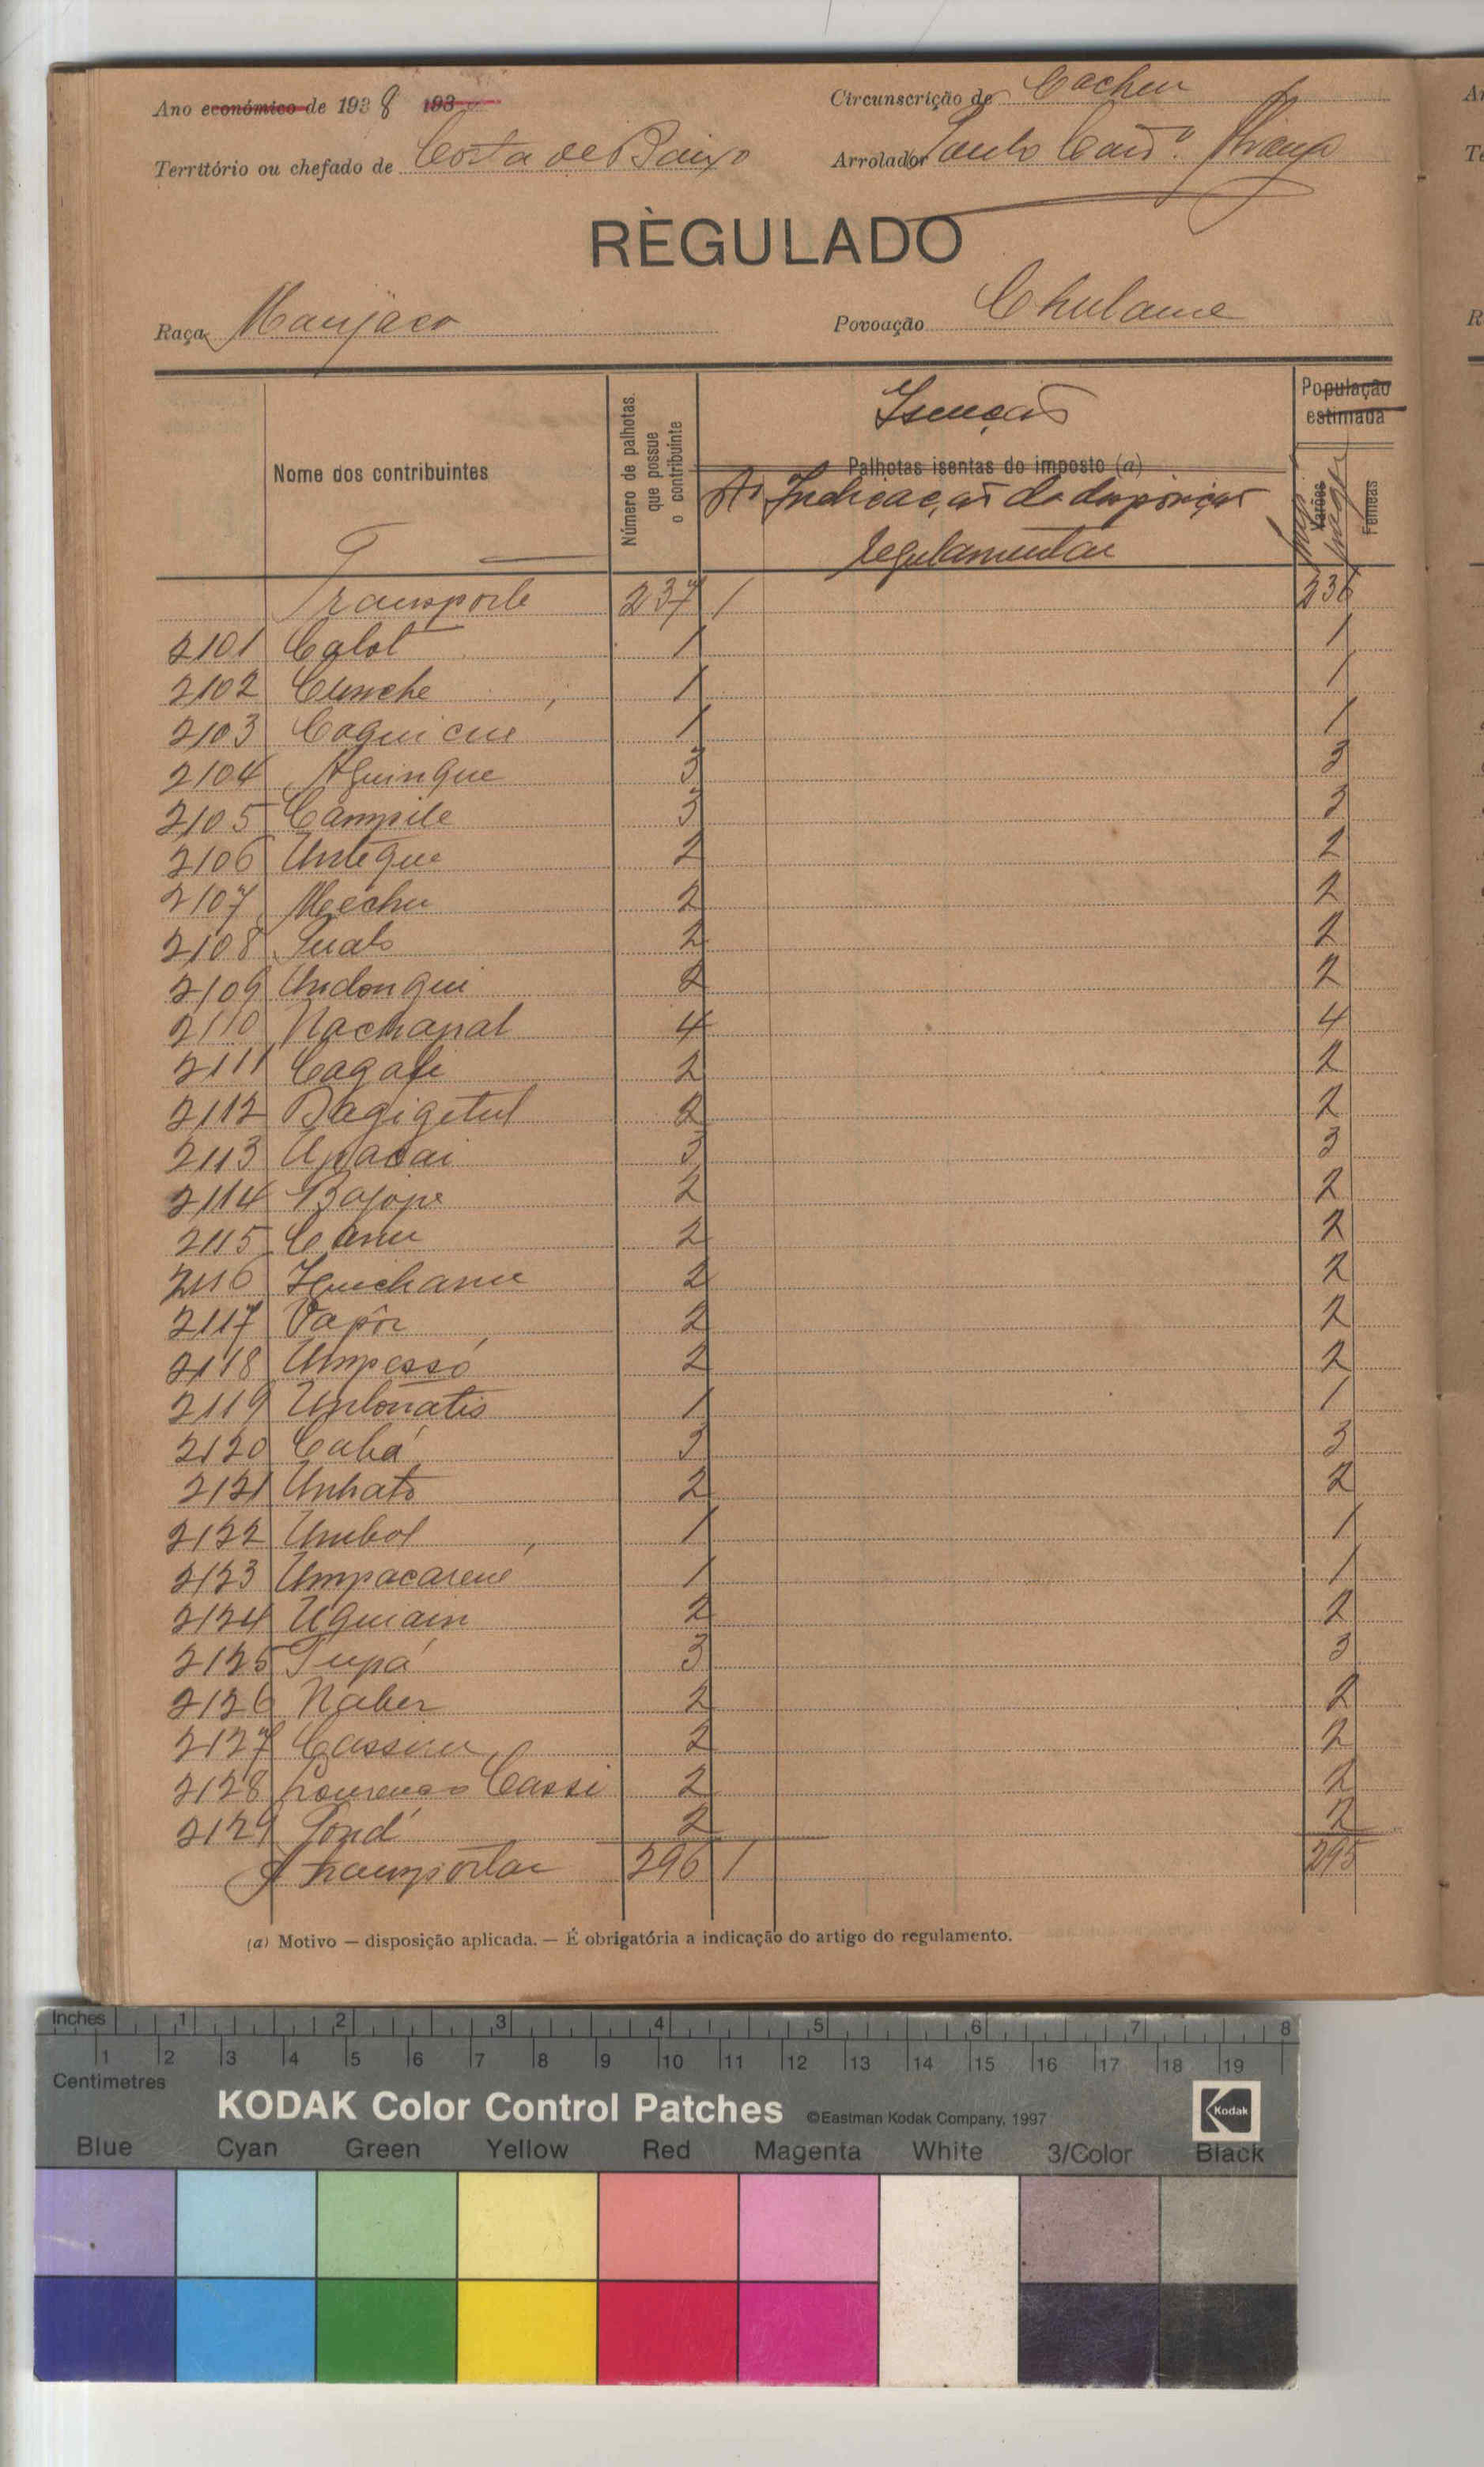 Ano económico de 1938 193
Circunscrição de Cacheu
Território ou chefado de Costa de Baixo
Arrolador Paulo
RÈGULADO
Raça Manjaco
Povoação Chulame
Nome dos contribuintes
Número de palhotas que possue o contribuinte
Isenção
Palhotas isentas do imposto (a)
Nº Indicação da disposição
regulamentar
População estimada
Varões
Fémeas
Transporte 237 1 236
2101 Calot 1 1
2102 Cunche 1 1
2103 Coquicué 1 1
2104 Aguinque 3 3
2105 Campile 3 3
2106 Unteque 2 2
2107 Mechu 2 2
2108 Quato 2 2
2109 Undonqui 2 2
2110 Nachapal 4 4
2111 Cagafe 2 2
2112 Bagigetul 2 2
2113 Upacai 3 3
2114 Bajope 2 2
2115 Canu 2 2
2116 Iquichame 2 2
2117 Vapôr 2 2
2118 Umpessó 2 2
2119 Unlonatis 1 1
2120 Cabá 3 3
2121 Unhato 2 2
2122 Umbol 1 1
2123 Umpacarené 1 1
2124 Uquiain 2 2
2125 Tupá 3 3
2126 Naber 2 2
2127 Cassiru 2 2
2128 Lourenço Cassi 2 2
2129 Pond 2 2
A transportar 296 1 295
(a) Motivo — disposição aplicada. — É obrigatória a indicação do artigo do regulamento.
Inches 1 2 3 4 5 6 7 8
1 2 3 4 5 6 7 8 9 10 11 12 13 14 15 16 17 18 19
Centimetres
KODAK Color Control Patches ©Eastman Kodak Company, 1997 Kodak
Blue Cyan Green Yellow Red Magenta White 3/Color Black